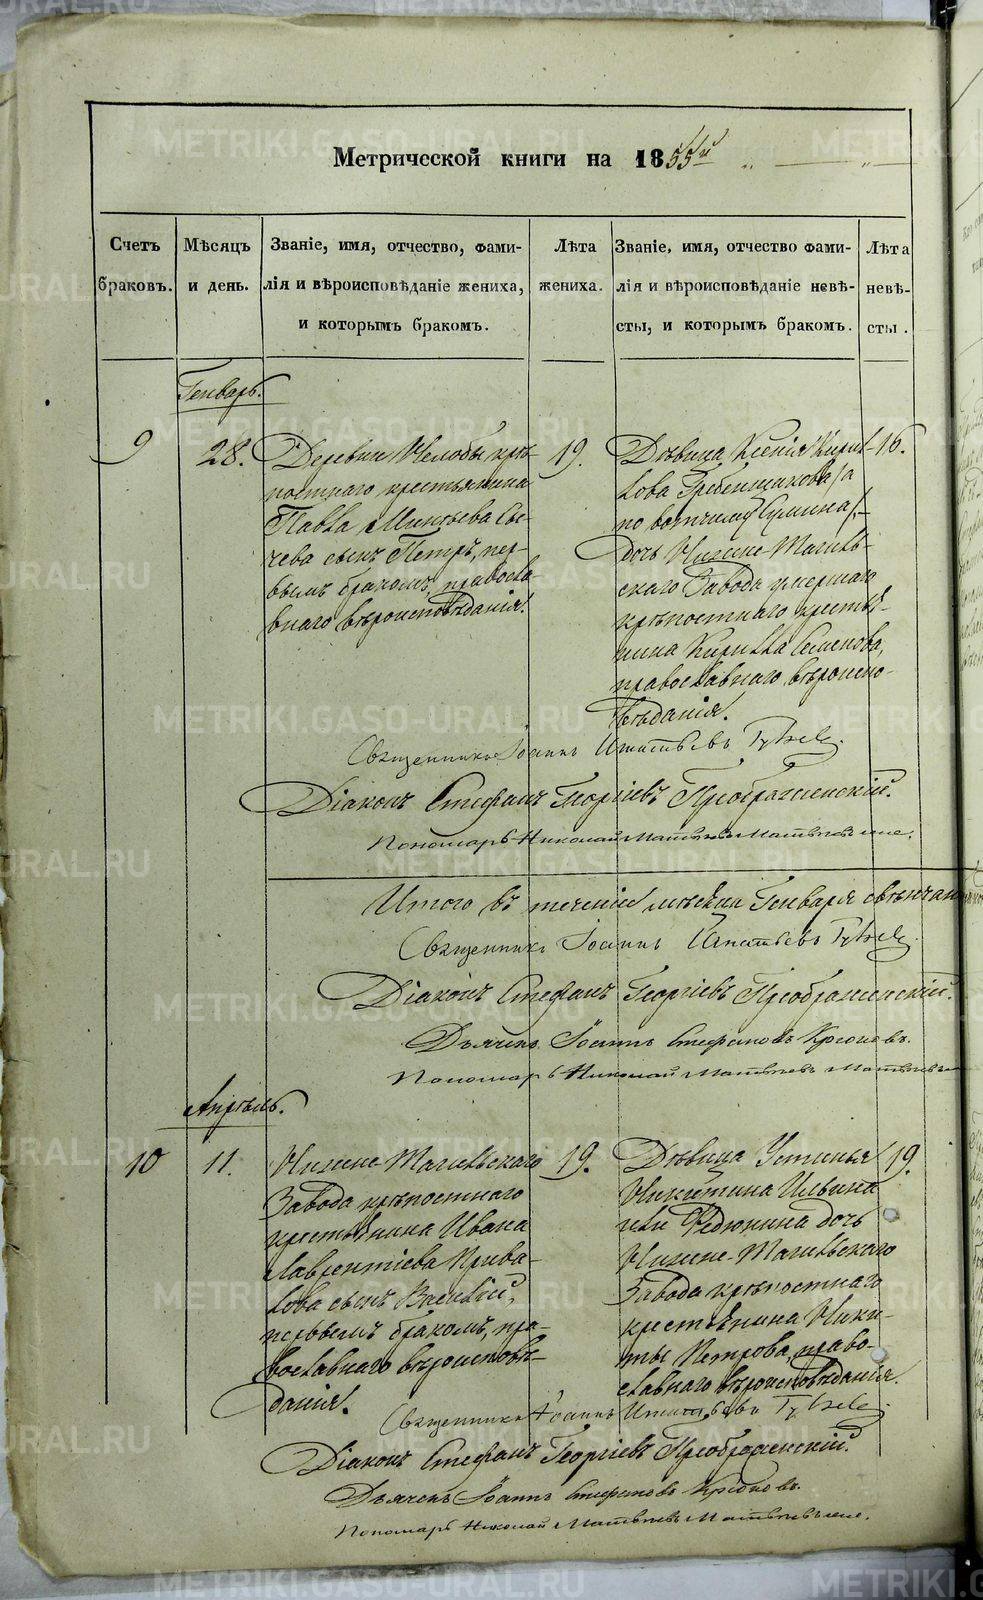 Метрической книги на 1855й
Счетъ браковъ.
Мѣсяцъ и день.
Званіе, имя, отчество, фами-
лія и вѣроисповѣданіе жениха,
и которымъ бракомъ.
Лѣта жениха.
Званіе, имя, отчество фами-
лія и вѣроисповѣданіе невѣ-
сты, и которымъ бракомъ.
Лѣта невѣ-
сты.
Генварь.
9
28.
Деревни Челобы крѣ-
постнаго крестьянина
Павла Сы-
чева сынъ Петръ, пер-
вымъ бракомъ, правосла-
внаго вѣроисповѣданія.
19.
Дѣвица Ксенія Кирил-
лова Гребенщикова /а
по вотчиму Сумина/,-
дочь Нижне-Тагиль-
скаго Завода умершаго
крѣпостнаго крестья-
нина Кирилла Семенова,
православнаго вѣроиспо-
вѣданія.
16.
Священникъ Іоаннъ Игнатьевъ
Діаконъ Стефанъ Георгіевъ Преображенскій.
Пономарь Николай Матвѣевъ
Итого въ теченіи мѣсяца Генваря свѣнчано
Священникъ Іоаннъ Игнатьевъ
Діаконъ Стефанъ Георгіевъ Преображенскій.
Дьячекъ Іоаннъ Стефановъ Крюковъ.
Пономарь Николай Матвѣевъ
Апрѣль.
10
11.
Нижне-Тагильскаго
Завода крѣпостнаго
крестьянина Ивана
Лаврентіева Прива-
лова сынъ Василій,
первымъ бракомъ, пра-
вославнаго вѣроисповѣ-
данія.
19.
Дѣвица Устинья
Никитина Ильина
или Федюнина дочь
Нижне-Тагильскаго
Завода крѣпостнаго
крестьянина Ники-
ты Петрова, право-
славнаго вѣроисповѣданія.
19.
Священникъ Іоаннъ Игнатьевъ
Діаконъ Стефанъ Георгіевъ Преображенскій.
Дьячекъ Іоаннъ Стефановъ Крюковъ.
Пономарь Николай Матвѣевъ
METRIKI.GASO-URAL.RU